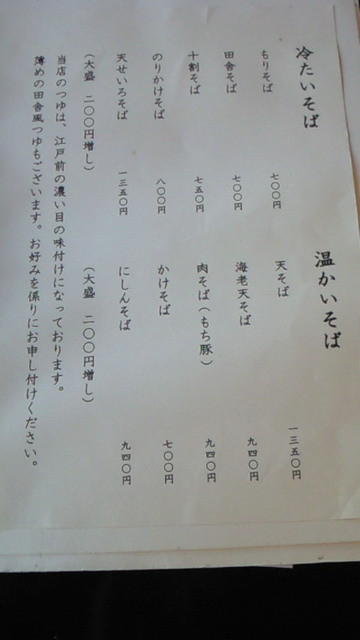 冷たいそば
もりそば 七〇〇円
田舎そば 七〇〇円
十割そば 七五〇円
のりかけそば 八〇〇円
天せいろそば 一三五〇円
(大盛 二〇〇円増し)
温かいそば
天そば 一三五〇円
海老天そば 九四〇円
肉そば(もち豚) 九四〇円
かけそば 七〇〇円
にしんそば 九四〇円
(大盛 二〇〇円増し)
当店のつゆは、江戸前の濃い目の味付けになっております。
薄めの田舎風つゆもございます。お好みを係りにお申し付けください。